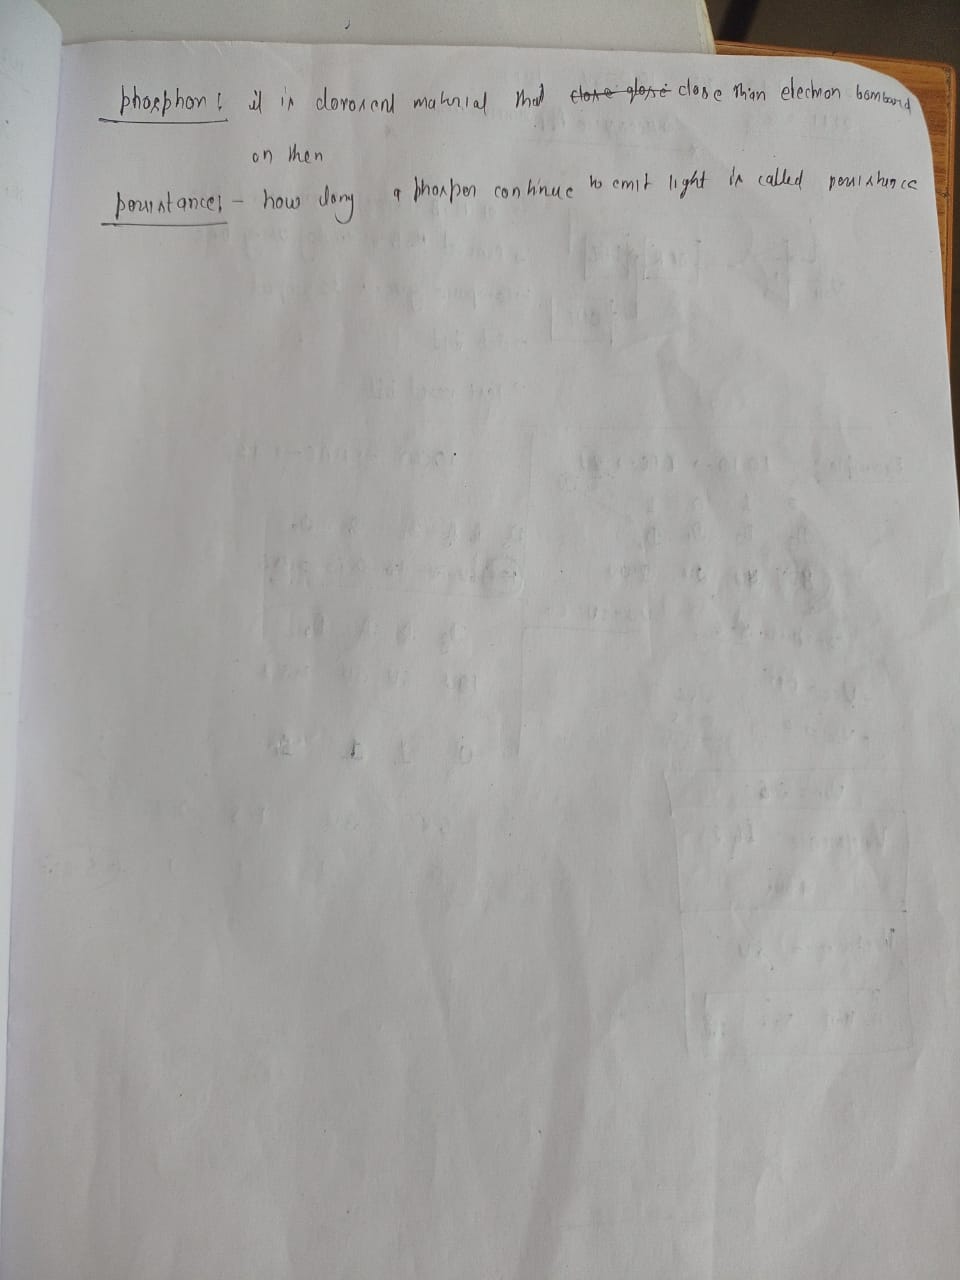 phosphor: it is clorosent material that close than electron bombard
on then
persistance:- how long a phosper continue to emit light is called persistance